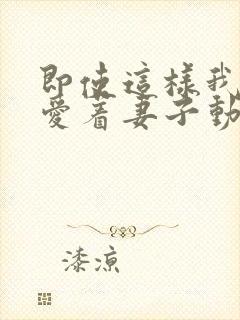 即使這樣我
愛着妻子動
漆涼